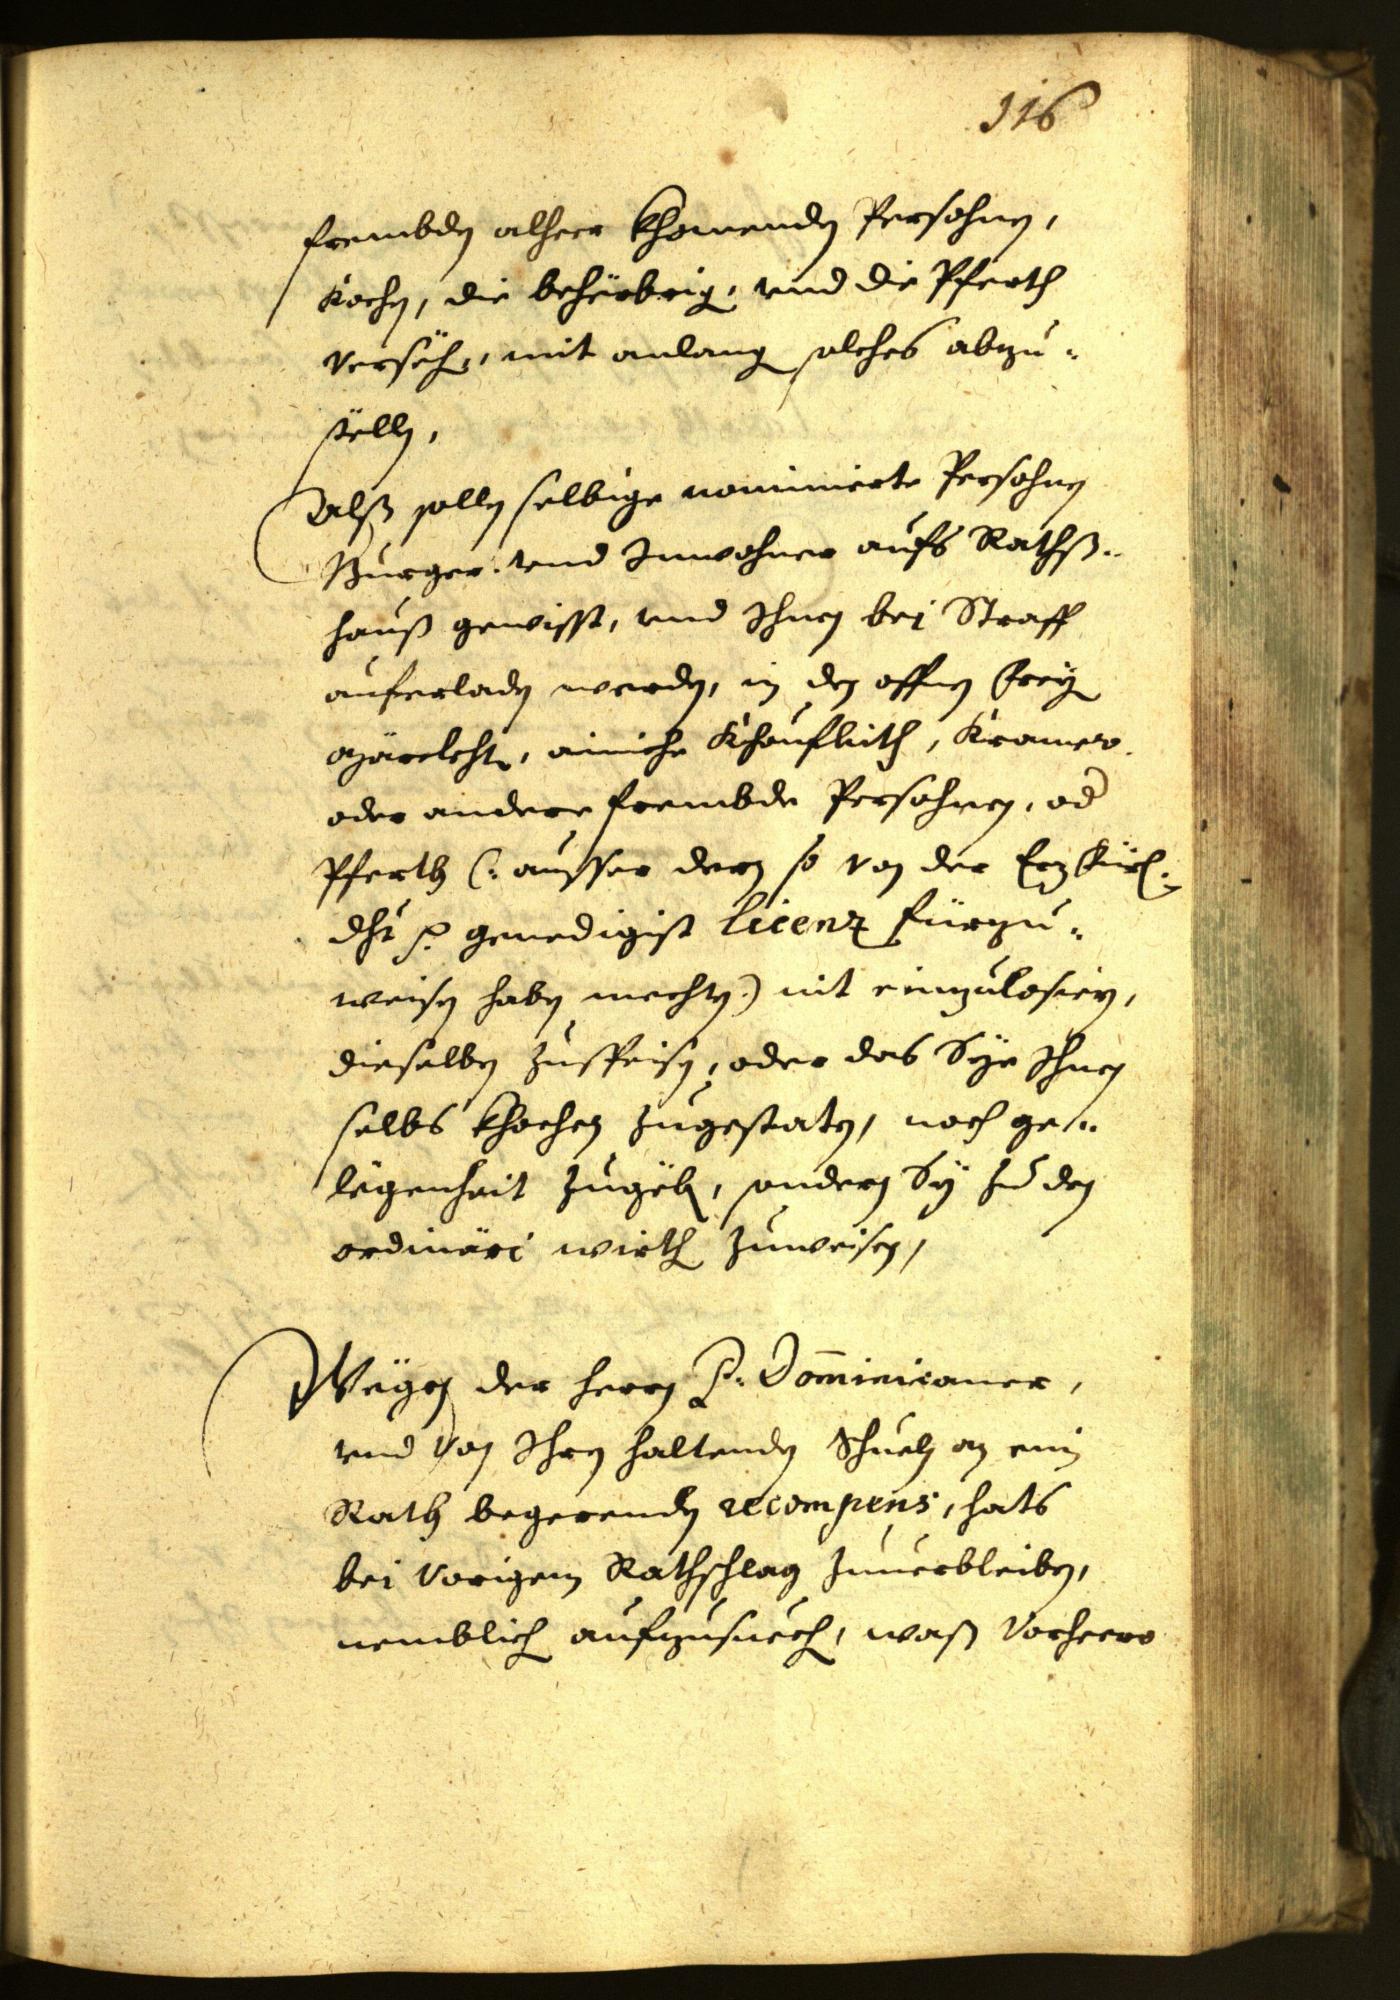 116
frembden alheer khomenden Persohnen,
Kochen, die behërbrig, und die Pferth
versëhen, mit anlang solches abzu-
stëllen,
Alß sollen selbige nominierte Persohnen
Burger und Inwohner aufs Rathß-
hauß gewisst, und Ihnen bei Straff
auferladen werden, in den offnen Frey
märckht, ainiche Khaufleith, Kramer
oder andere frembde Persohnen, od
Pferth (: ausser deren so von der Erz Fürl:
dht p. genedigist licenz fürzu-
weisen haben mechten:) nit einzulosiern,
dieselben zuspeisen, oder das Sye Ihnen
selbs khochen zugestaten, noch ge-
lëgenheit zugëben, sondern Sy zu den
ordinäri wirth zuweisen,
Wëgen der herrn P. Dominicaner,
und von Ihren haltenden Schuelen an ein
Rath begerenden recompens, hats
bei vorigem Rathschlag zuuerbleiben,
nemblich aufzusuech, waß vorheero